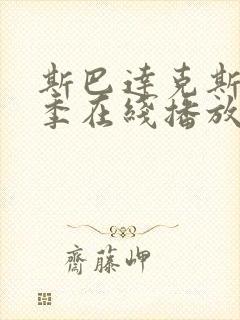 斯巴達克斯
季在綫播放
齋藤岬